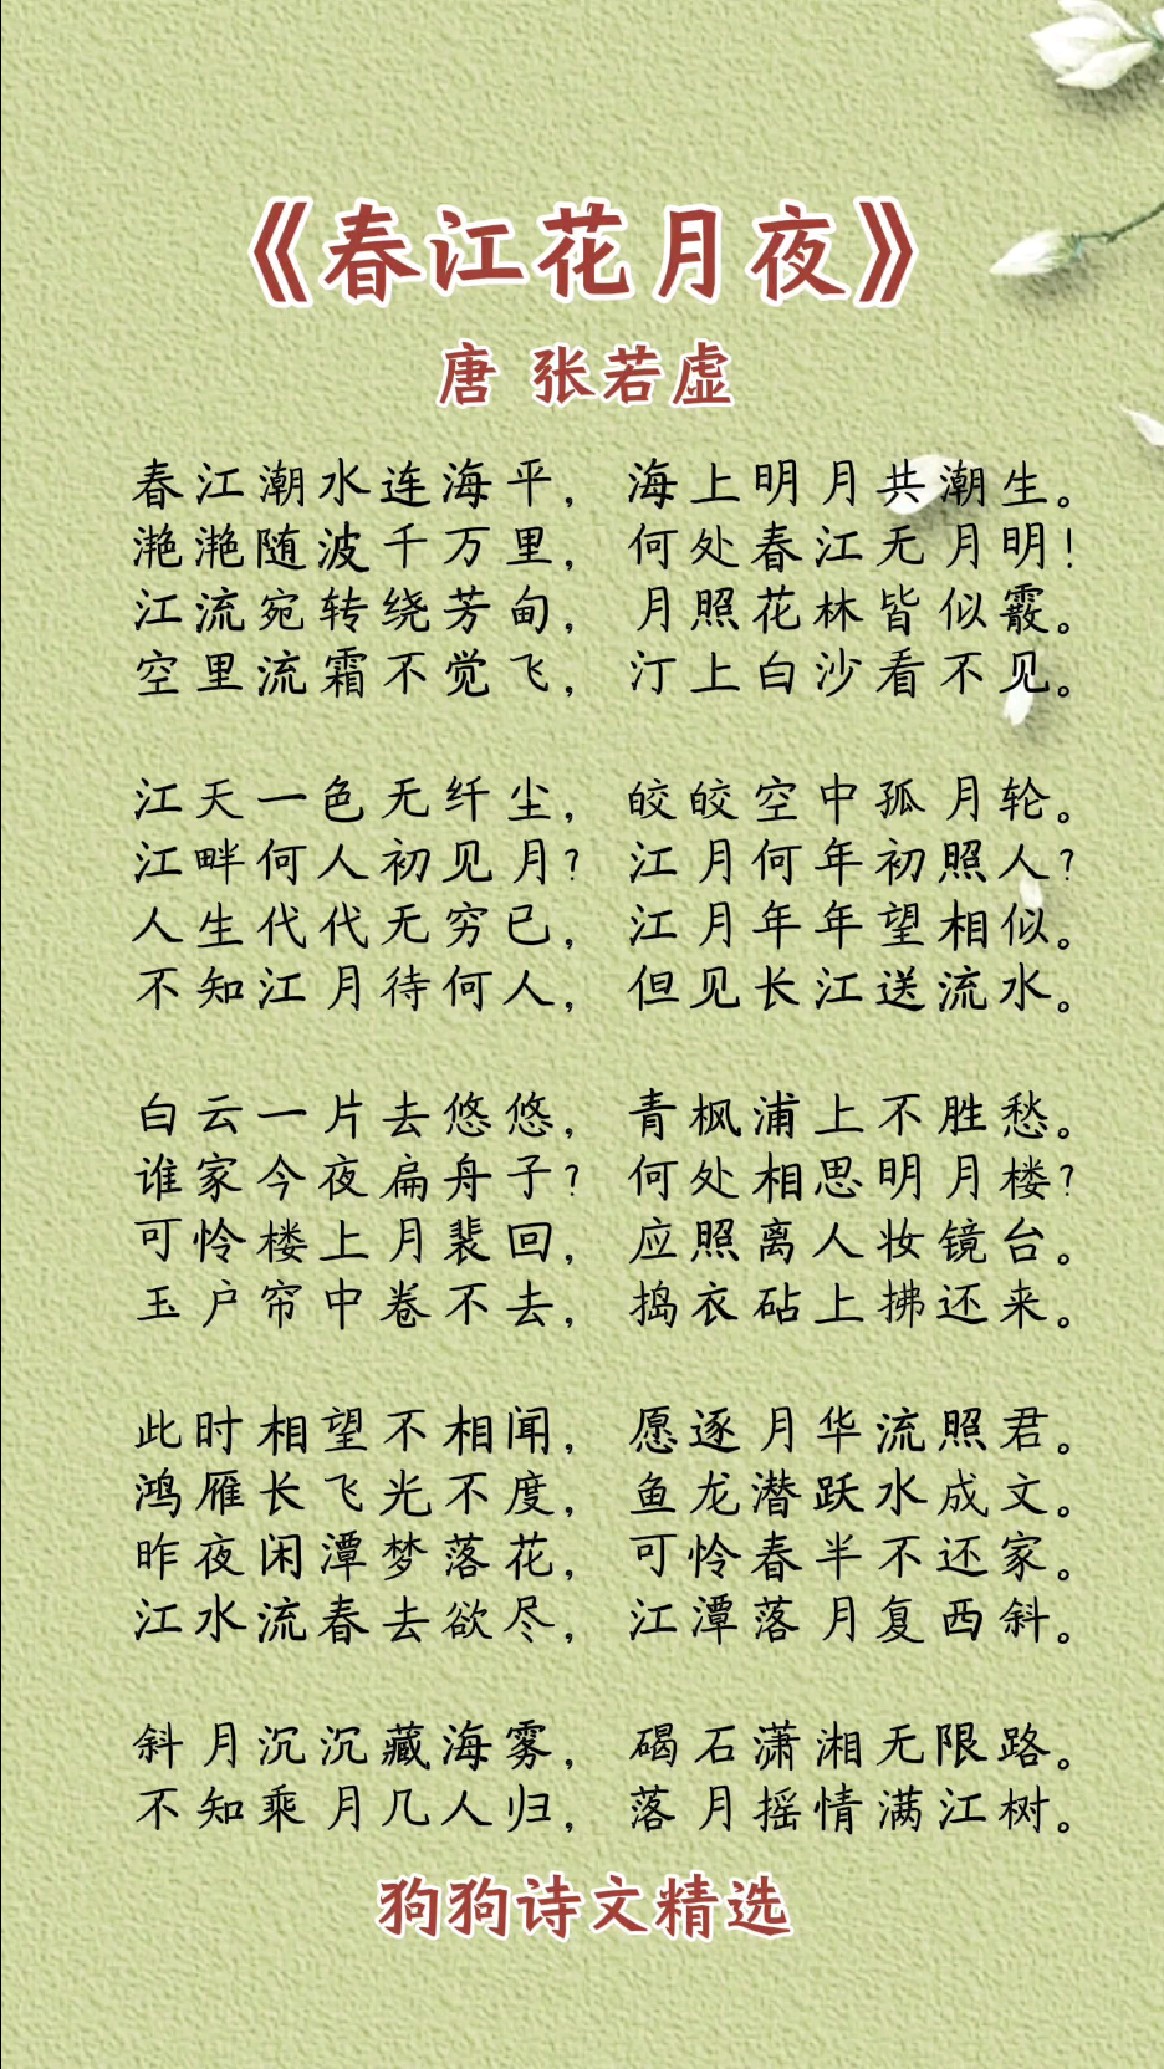 《春江花月夜》
唐 张若虚
春江潮水连海平，海上明月共潮生。
滟滟随波千万里，何处春江无月明！
江流宛转绕芳甸，月照花林皆似霰。
空里流霜不觉飞，汀上白沙看不见。
江天一色无纤尘，皎皎空中孤月轮。
江畔何人初见月？江月何年初照人？
人生代代无穷已，江月年年望相似。
不知江月待何人，但见长江送流水。
白云一片去悠悠，青枫浦上不胜愁。
谁家今夜扁舟子？何处相思明月楼？
可怜楼上月裴回，应照离人妆镜台。
玉户帘中卷不去，捣衣砧上拂还来。
此时相望不相闻，愿逐月华流照君。
鸿雁长飞光不度，鱼龙潜跃水成文。
昨夜闲潭梦落花，可怜春半不还家。
江水流春去欲尽，江潭落月复西斜。
斜月沉沉藏海雾，碣石潇湘无限路。
不知乘月几人归，落月摇情满江树。
狗狗诗文精选